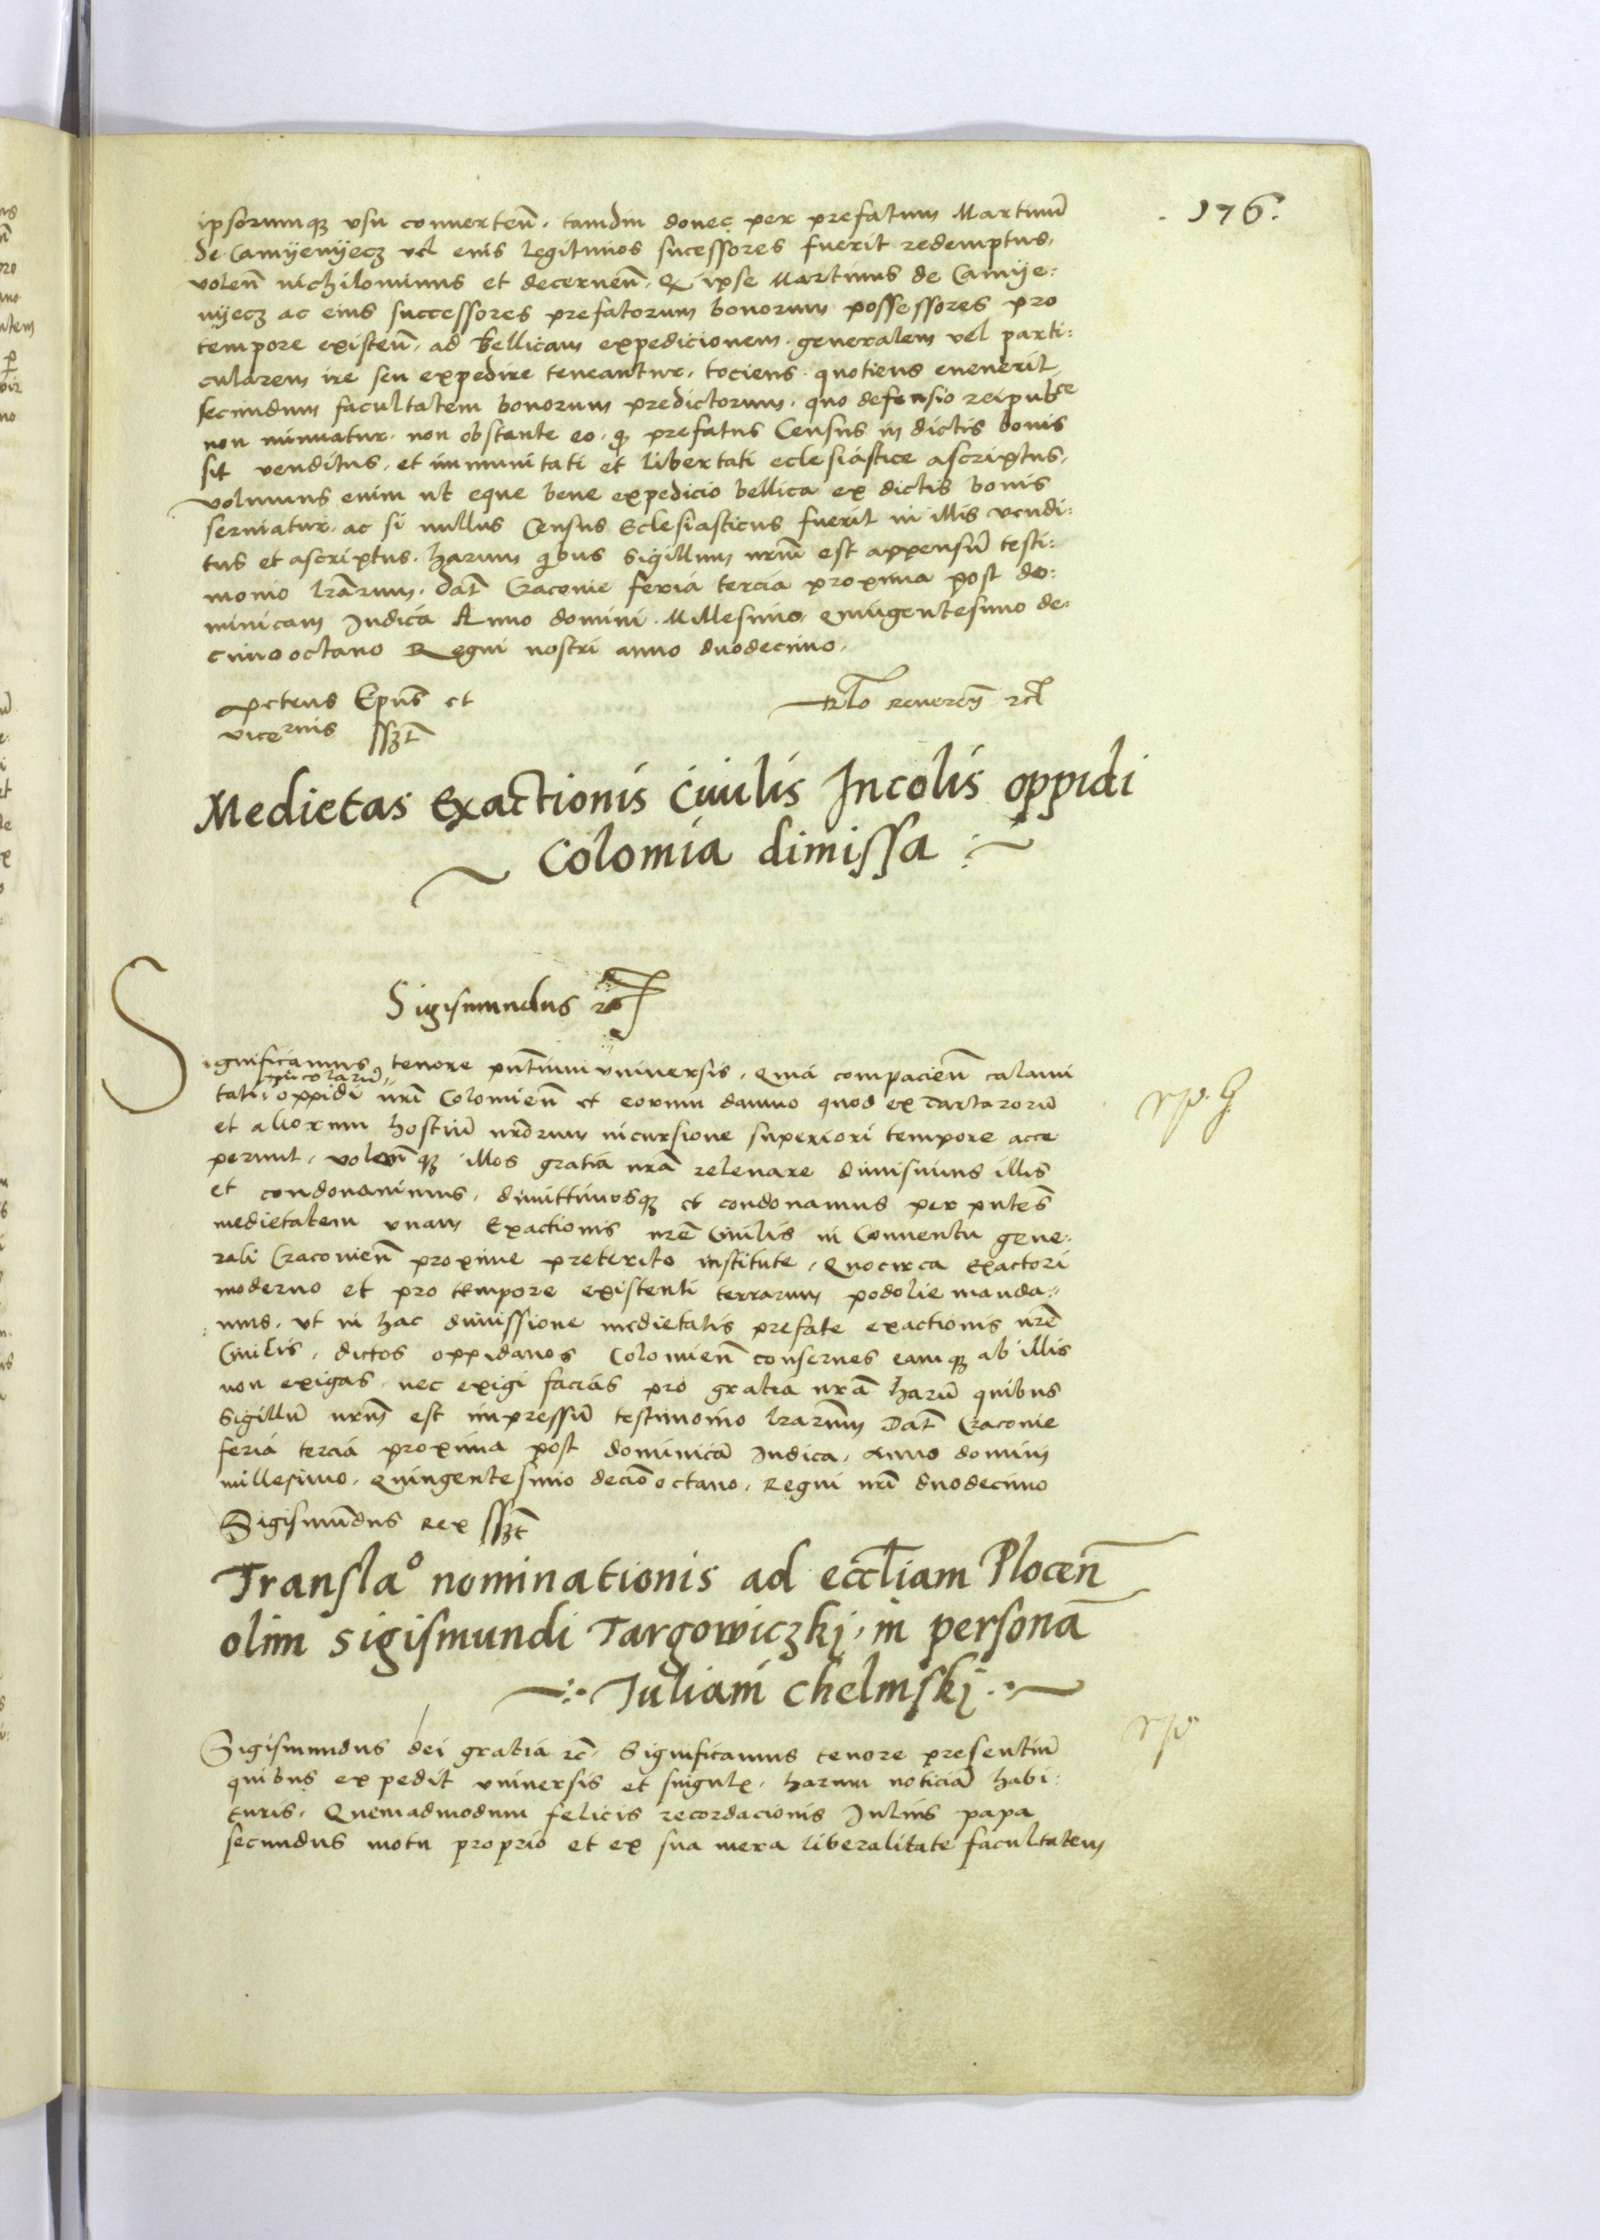 .176.
ipsorumqȝ vsu conuerteñ. tamdiu donec per prefatum Martinū
de Camyenyecz vel eius legitimos sucessores fuerit redemptus.
voleñ nichilominus et decerneñ. Q ipse Martinus de Camye:
nyecz ac eius successores prefatorum bonorum possessores pro
tempore existeñ. ad Bellicam expedicionem. generalem vel parti:
cularem ire seu expedire teneantur. tociens quotiens euenerit
secundum facultatem bonorum predictorum. quo defensio reipubce
non minuatur. non obstante eo. q prefatus Census in dictis bonis
sit venditus. et immunitati et libertati eclesiastice ascriptus.
volumus enim ut eque bene expedicio bellica ex dictis bonis
seruiatur. ac si nullus Census Eclesiasticus fuerit in illis vendi:
tus et ascriptus. harum qibus Sigillum nrm̄ est appensū testi:
monio lrārum. Dat̄ Cracouie feria tercia proxima post do:
minicam Iudica Anno domini Millesimo quingentesimo de:
cimooctauo Regni nostri anno duodecimo.
Petrus Ep̄us et
vicecrius sszt
Rlo reuereñ rcl
Medietas Exactionis Ciuilis Incolis oppidi
Colomia dimissa
Sigismundus rc
Significamus tenore pn̄tium vniuersis. Quia compacieñ calami
tati incolarū oppidi nrī Colomieñ et eorum damno quod ex Tartarorū
et aliorum hostiū nrōrum incursione superiori tempore acce
perunt. voleñqȝ illos gratia nrā releuare dimisimus illis
et condonauimus. dimittimusqȝ et condonamus per pntes̄
medietatem vnam Exactionis nrē Ciuilis in Conuentu gene:
rali Cracouieñ proxime preterito institute. Quocirca Exactori
moderno et pro tempore existenti terrarum podolie manda:
mus. vt in hac dimissione medietatis prefate exactionis nrē
Ciuilis. dictos oppidanos Colomieñ conserues eamqȝ ab illis
non exigas. nec exigi facias pro gratia nrā harū quibus
Sigillū nrm̄ est impressū testimonio lrarūm Dat̄ Cracouie
feria tercia proxima post dominicā Iudica. Anno domini
millesimo. Quingentesimo decio octauo. Regni nrī duodecimo
Sigismūdus Rex sszt
Transla° nominationis ad eccl̄iam Ploceñ
olim Sigismundi Targowiczkj. in personā
Iuliani Chelmskj
Sigismundus dei gratia rc̄. Significamus tenore presentiū
quibus expedit vniuersis et singulx. harum noticiā habi:
turis. Quemadmodum felicis recordacionis Iulius papa
secundus motu proprio et ex sua mera liberalitate facultatem